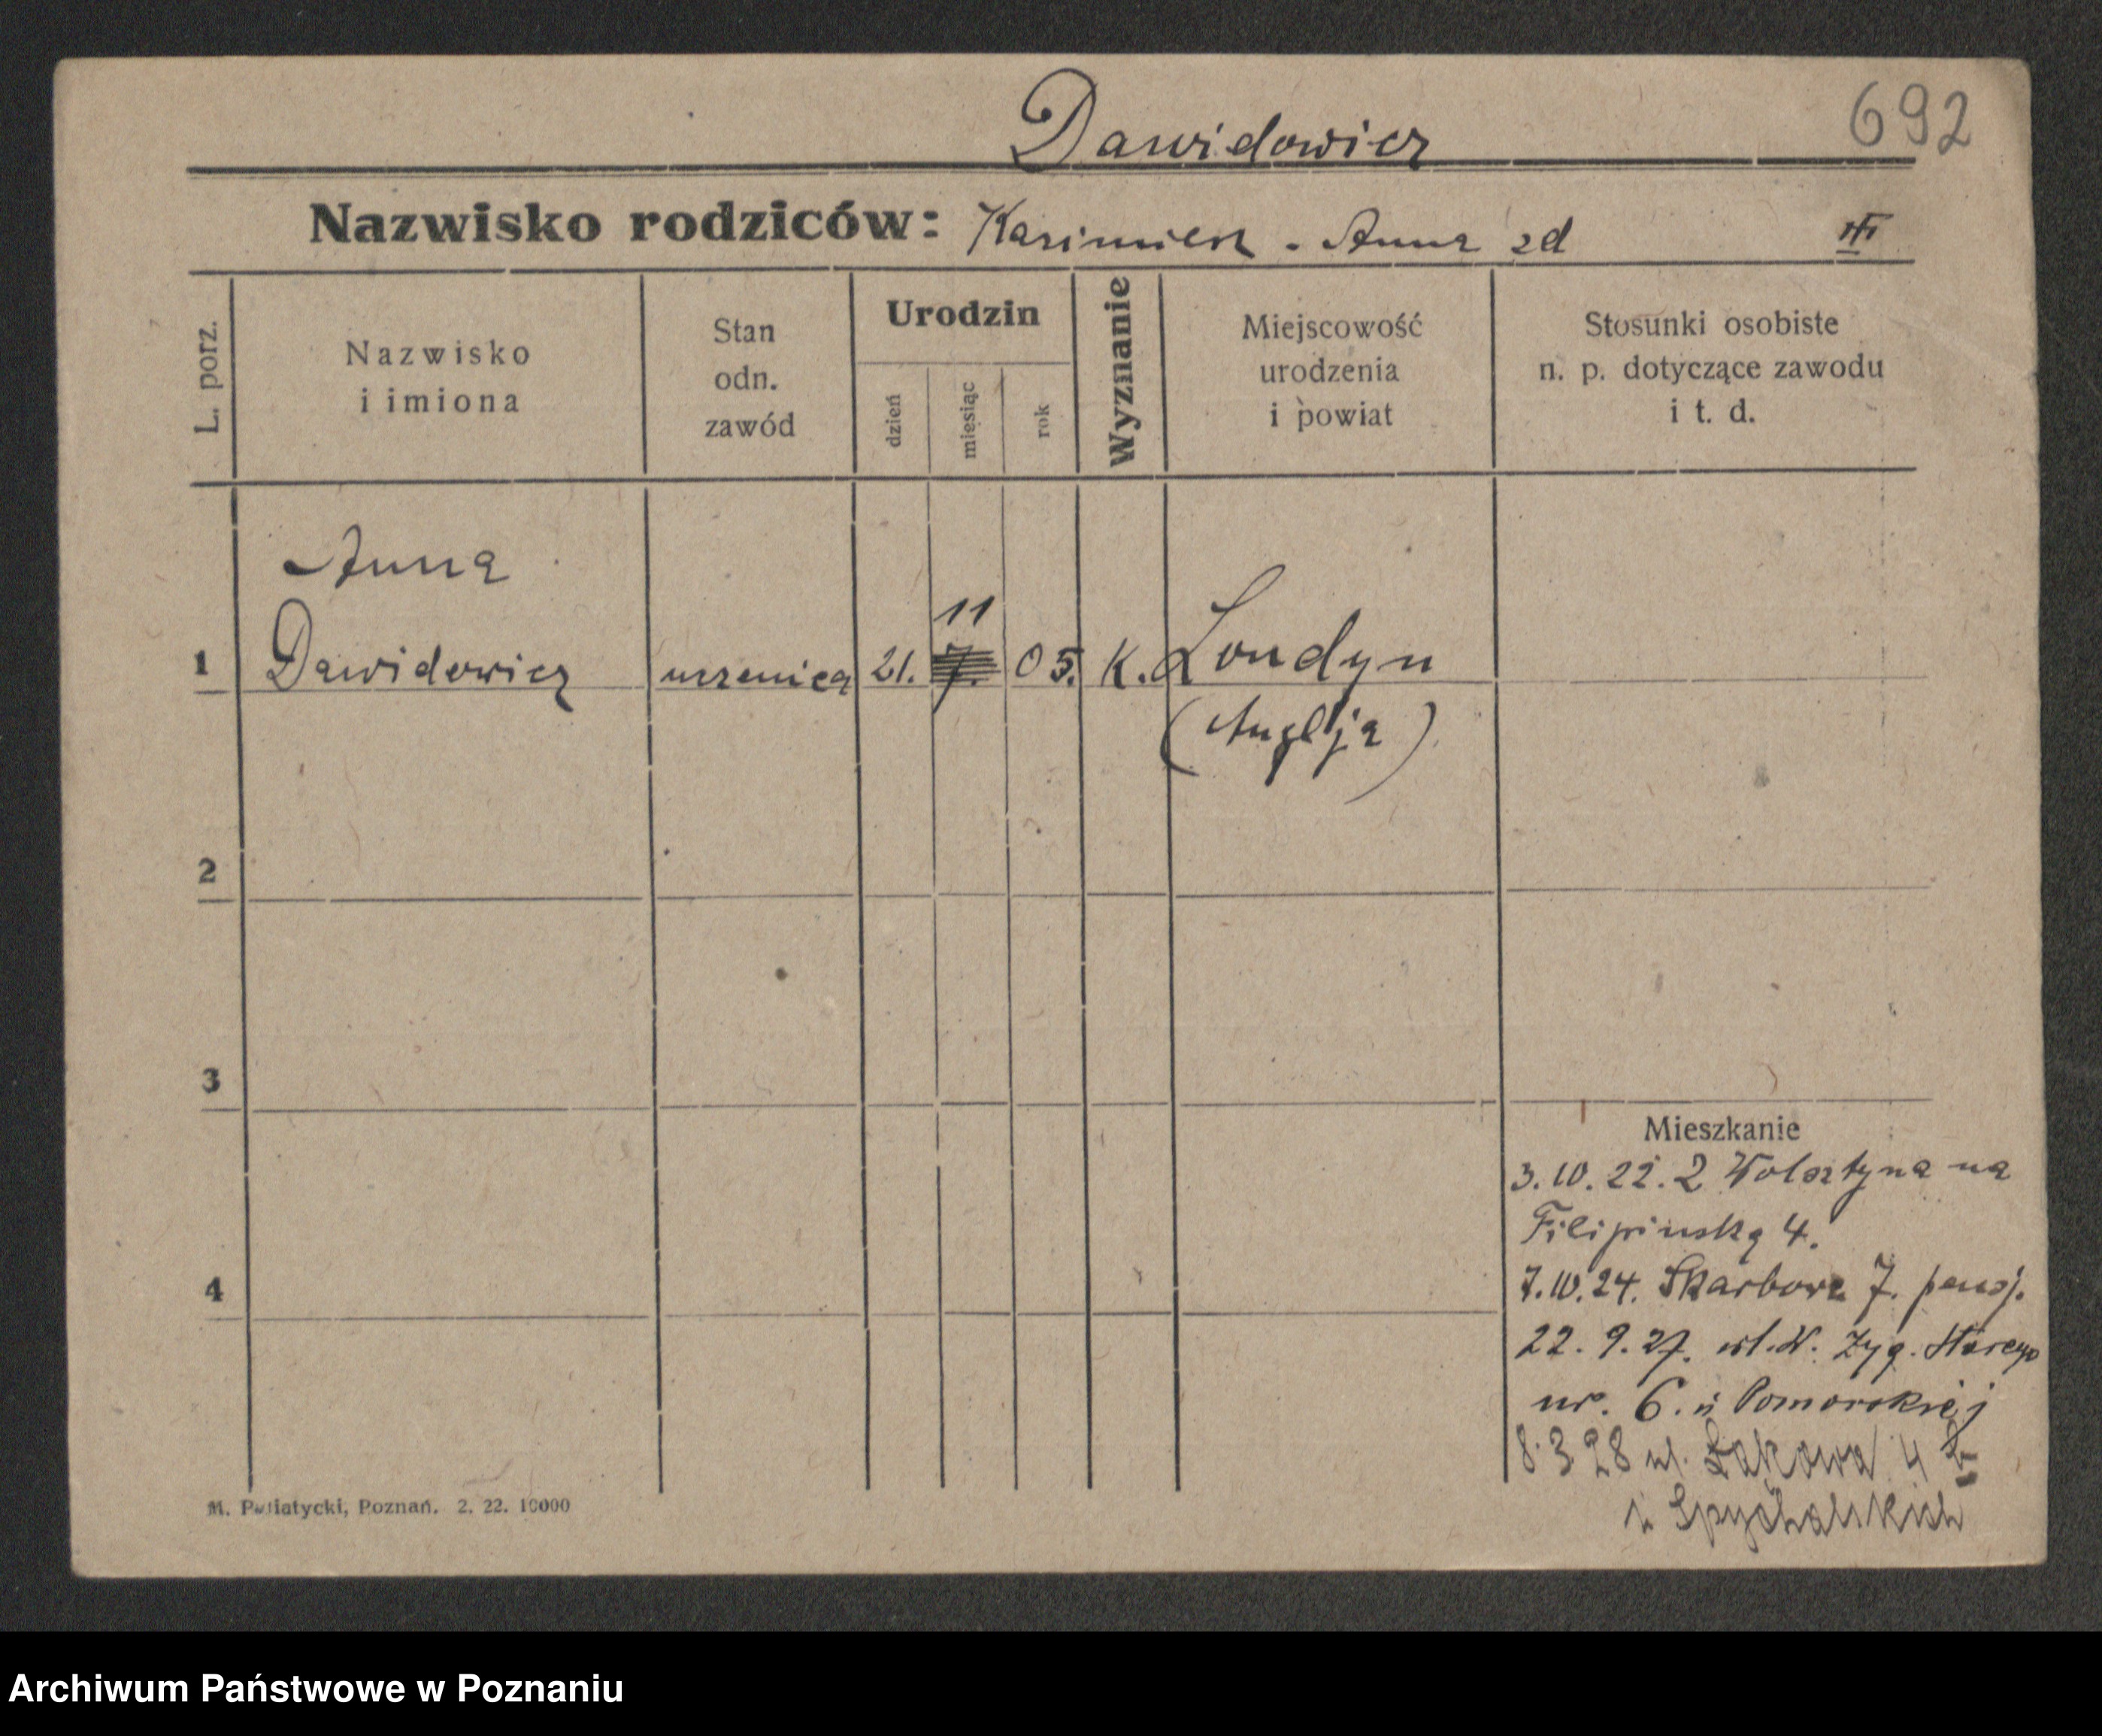 Dawidowicz
692
Nazwisko rodziców: Kazimierz - Anna zd
L. porz.
Nazwisko
i imiona
Stan
odn.
zawód
Urodzin
dzień
miesiąc
rok
Wyznanie
Miejscowość
urodzenia
i powiat
Stosunki osobiste
n. p. dotyczące zawodu
i t. d.
Anna
11
1 Dawidowicz uczenica 21. 7. 05. K. Londyn
(Anglja)
2
3
4
Mieszkanie
3.10.22. Z Wolsztyna na
Filipinską 4.
7.10.24. Skarbowa 7. pensj.
22. 9. 27. Zyg. Starego
nr. 6. u Pomorskiej
8.3 28 ul. Łąkowa 4
u Spychalskich
M. Putiatycki, Poznań. 2. 22. 10000
Archiwum Państwowe w Poznaniu